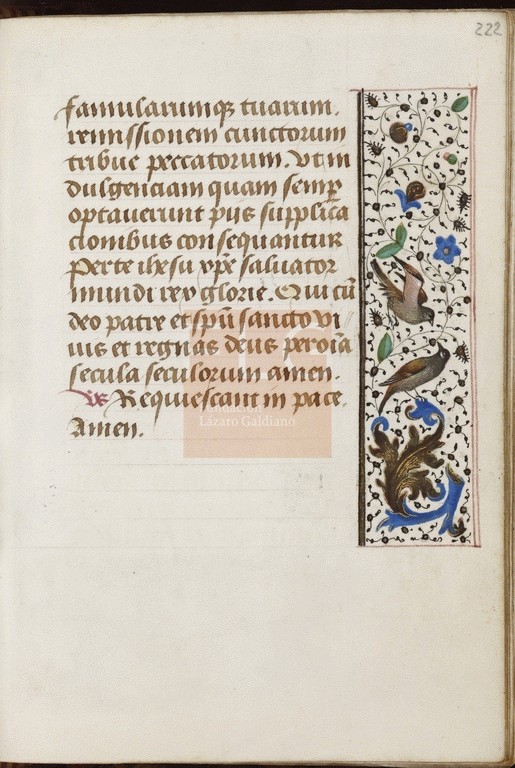 222
famularumq; tuarum.
remissionem cunctorum
tribue peccatorum. Vt in
dulgenciam quam semp
optauerunt pijs supplica
cionibus consequantur
Per te ihesu xpe saluator
mundi rex glorie. Qui cū
deo patre et spū sancto vi
uis et regnas deus per oīa
secula seculorum amen.
Vs Requiescant in pace.
Amen.
Fundación
Lázaro Galdiano